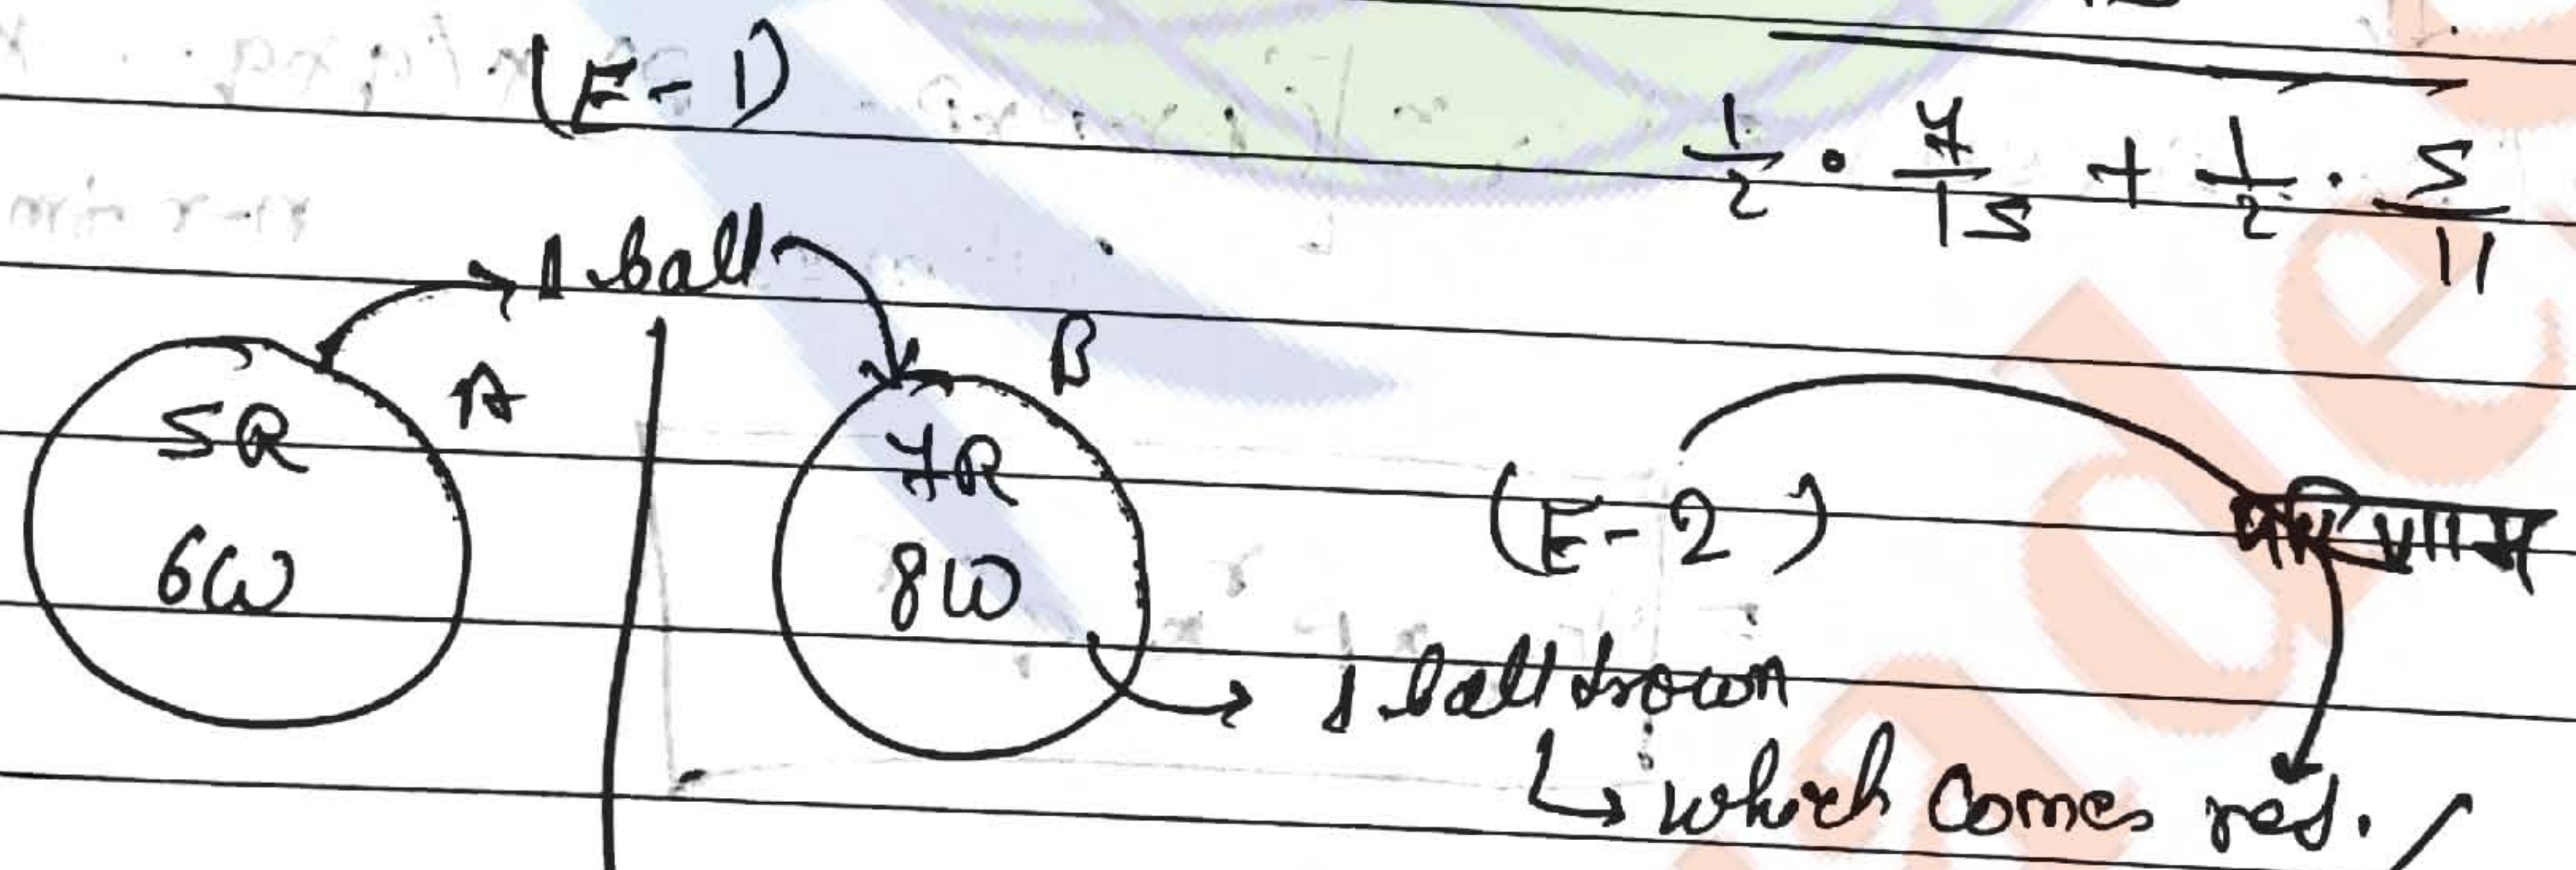 (E-1)
1/2 · 7/15 + 1/2 · 5/11
1 ball
A
B
5R
7R
6W
8W
(E-2)
परिणाम
1 ball drown
↳ which comes red.